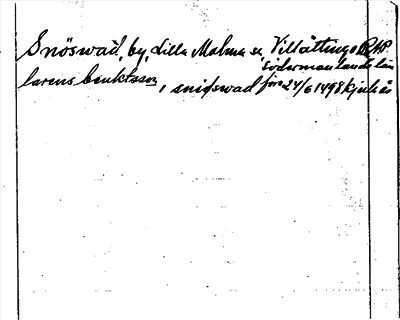 Snöswad, by, Lilla Malma sn, Villåttinge RAP
Södermanlands län
larens benktsson, snisswad före 24/6 1498 Kjula